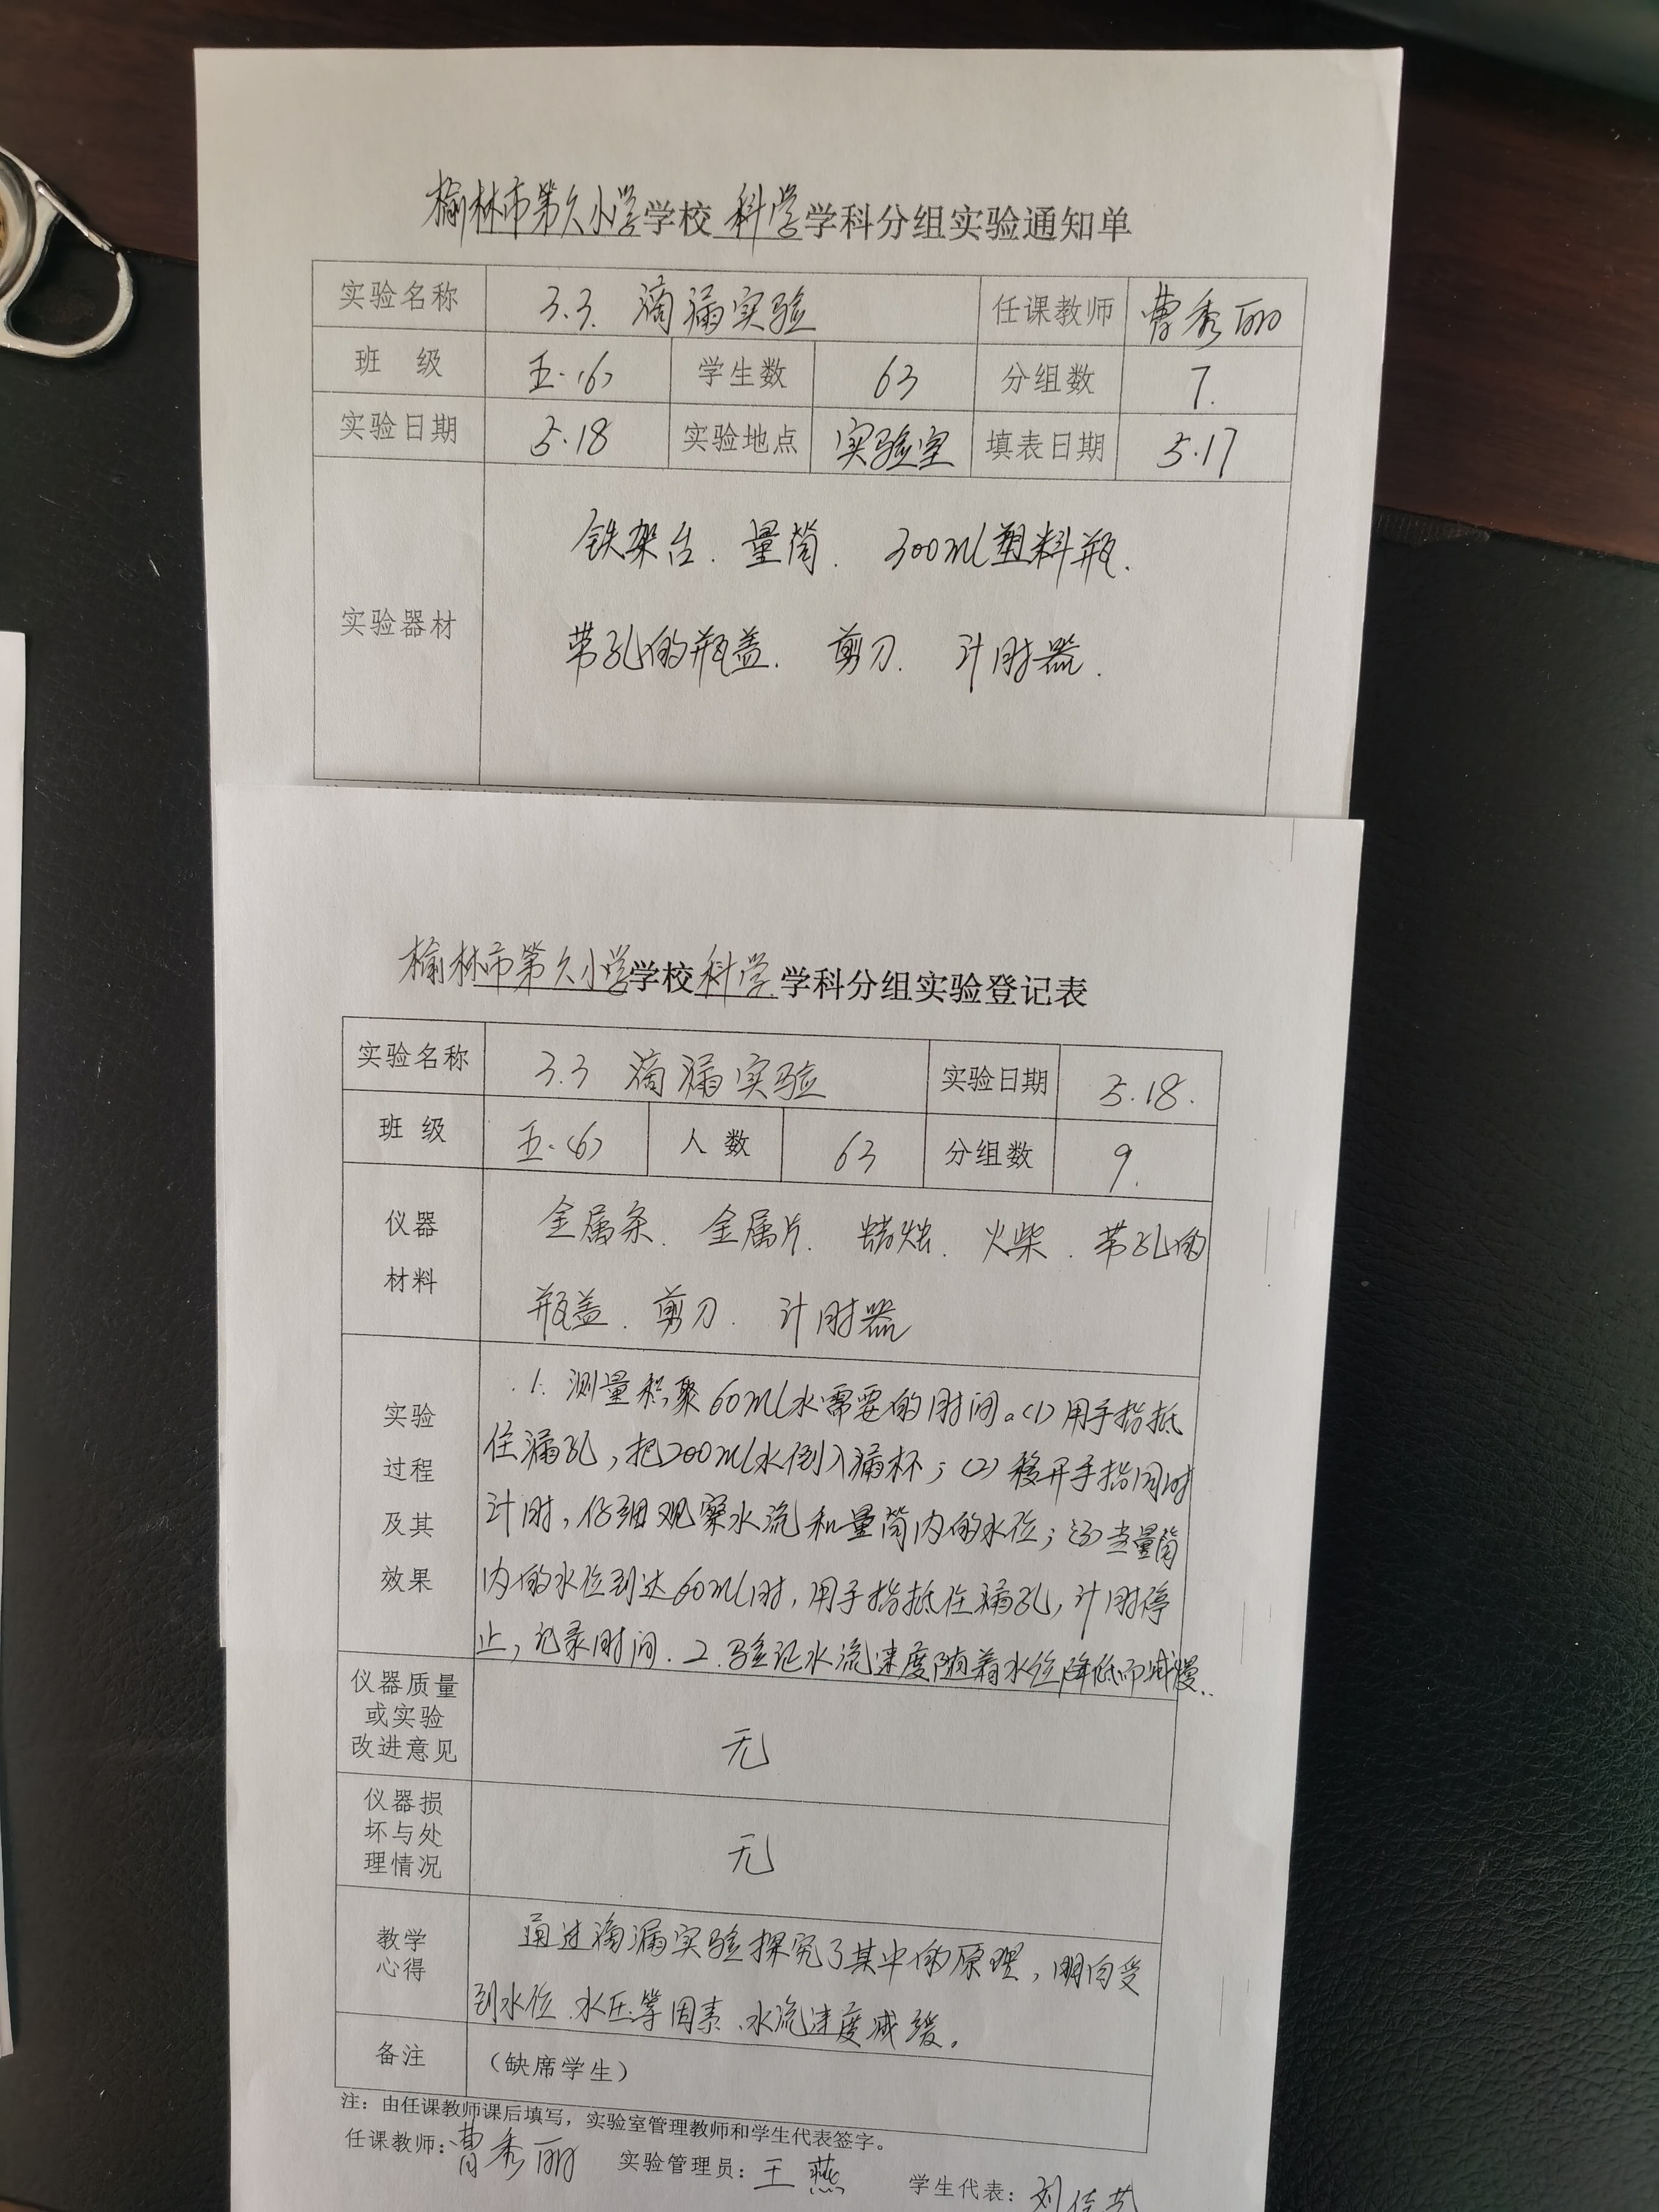 榆林市第九小学学校 科学学科分组实验通知单
实验名称 3.3. 滴漏实验 任课教师 曹秀丽
班 级 五.(6) 学生数 63 分组数 7.
实验日期 5.18 实验地点 实验室 填表日期 5.17
铁架台. 量筒. 300ml塑料瓶.
实验器材
带孔的瓶盖. 剪刀. 计时器.
榆林市第九小学学校科学学科分组实验登记表
实验名称 3.3 滴漏实验 实验日期 5.18.
班 级 五.(6) 人 数 63 分组数 9.
仪器
材料
金属条. 金属片. 蜡烛. 火柴. 带孔的
瓶盖. 剪刀. 计时器
实验
过程
及其
效果
1. 测量积聚60ml水需要的时间。(1)用手指抵
住漏孔,把200ml水倒入漏杯;(2)移开手指同时
计时,仔细观察水流和量筒内的水位;(3)当量筒
内的水位到达60ml时,用手指抵住漏孔,计时停
止,记录时间. 2.验证水流速度随着水位降低而减慢.
仪器质量
或实验
改进意见
无
仪器损
坏与处
理情况
无
教学
心得
通过滴漏实验探究了其中的原理,明白受
到水位.水压等因素.水流速度减缓。
备注 (缺席学生)
注:由任课教师课后填写,实验室管理教师和学生代表签字。
任课教师:曹秀丽 实验管理员:王燕 学生代表:刘